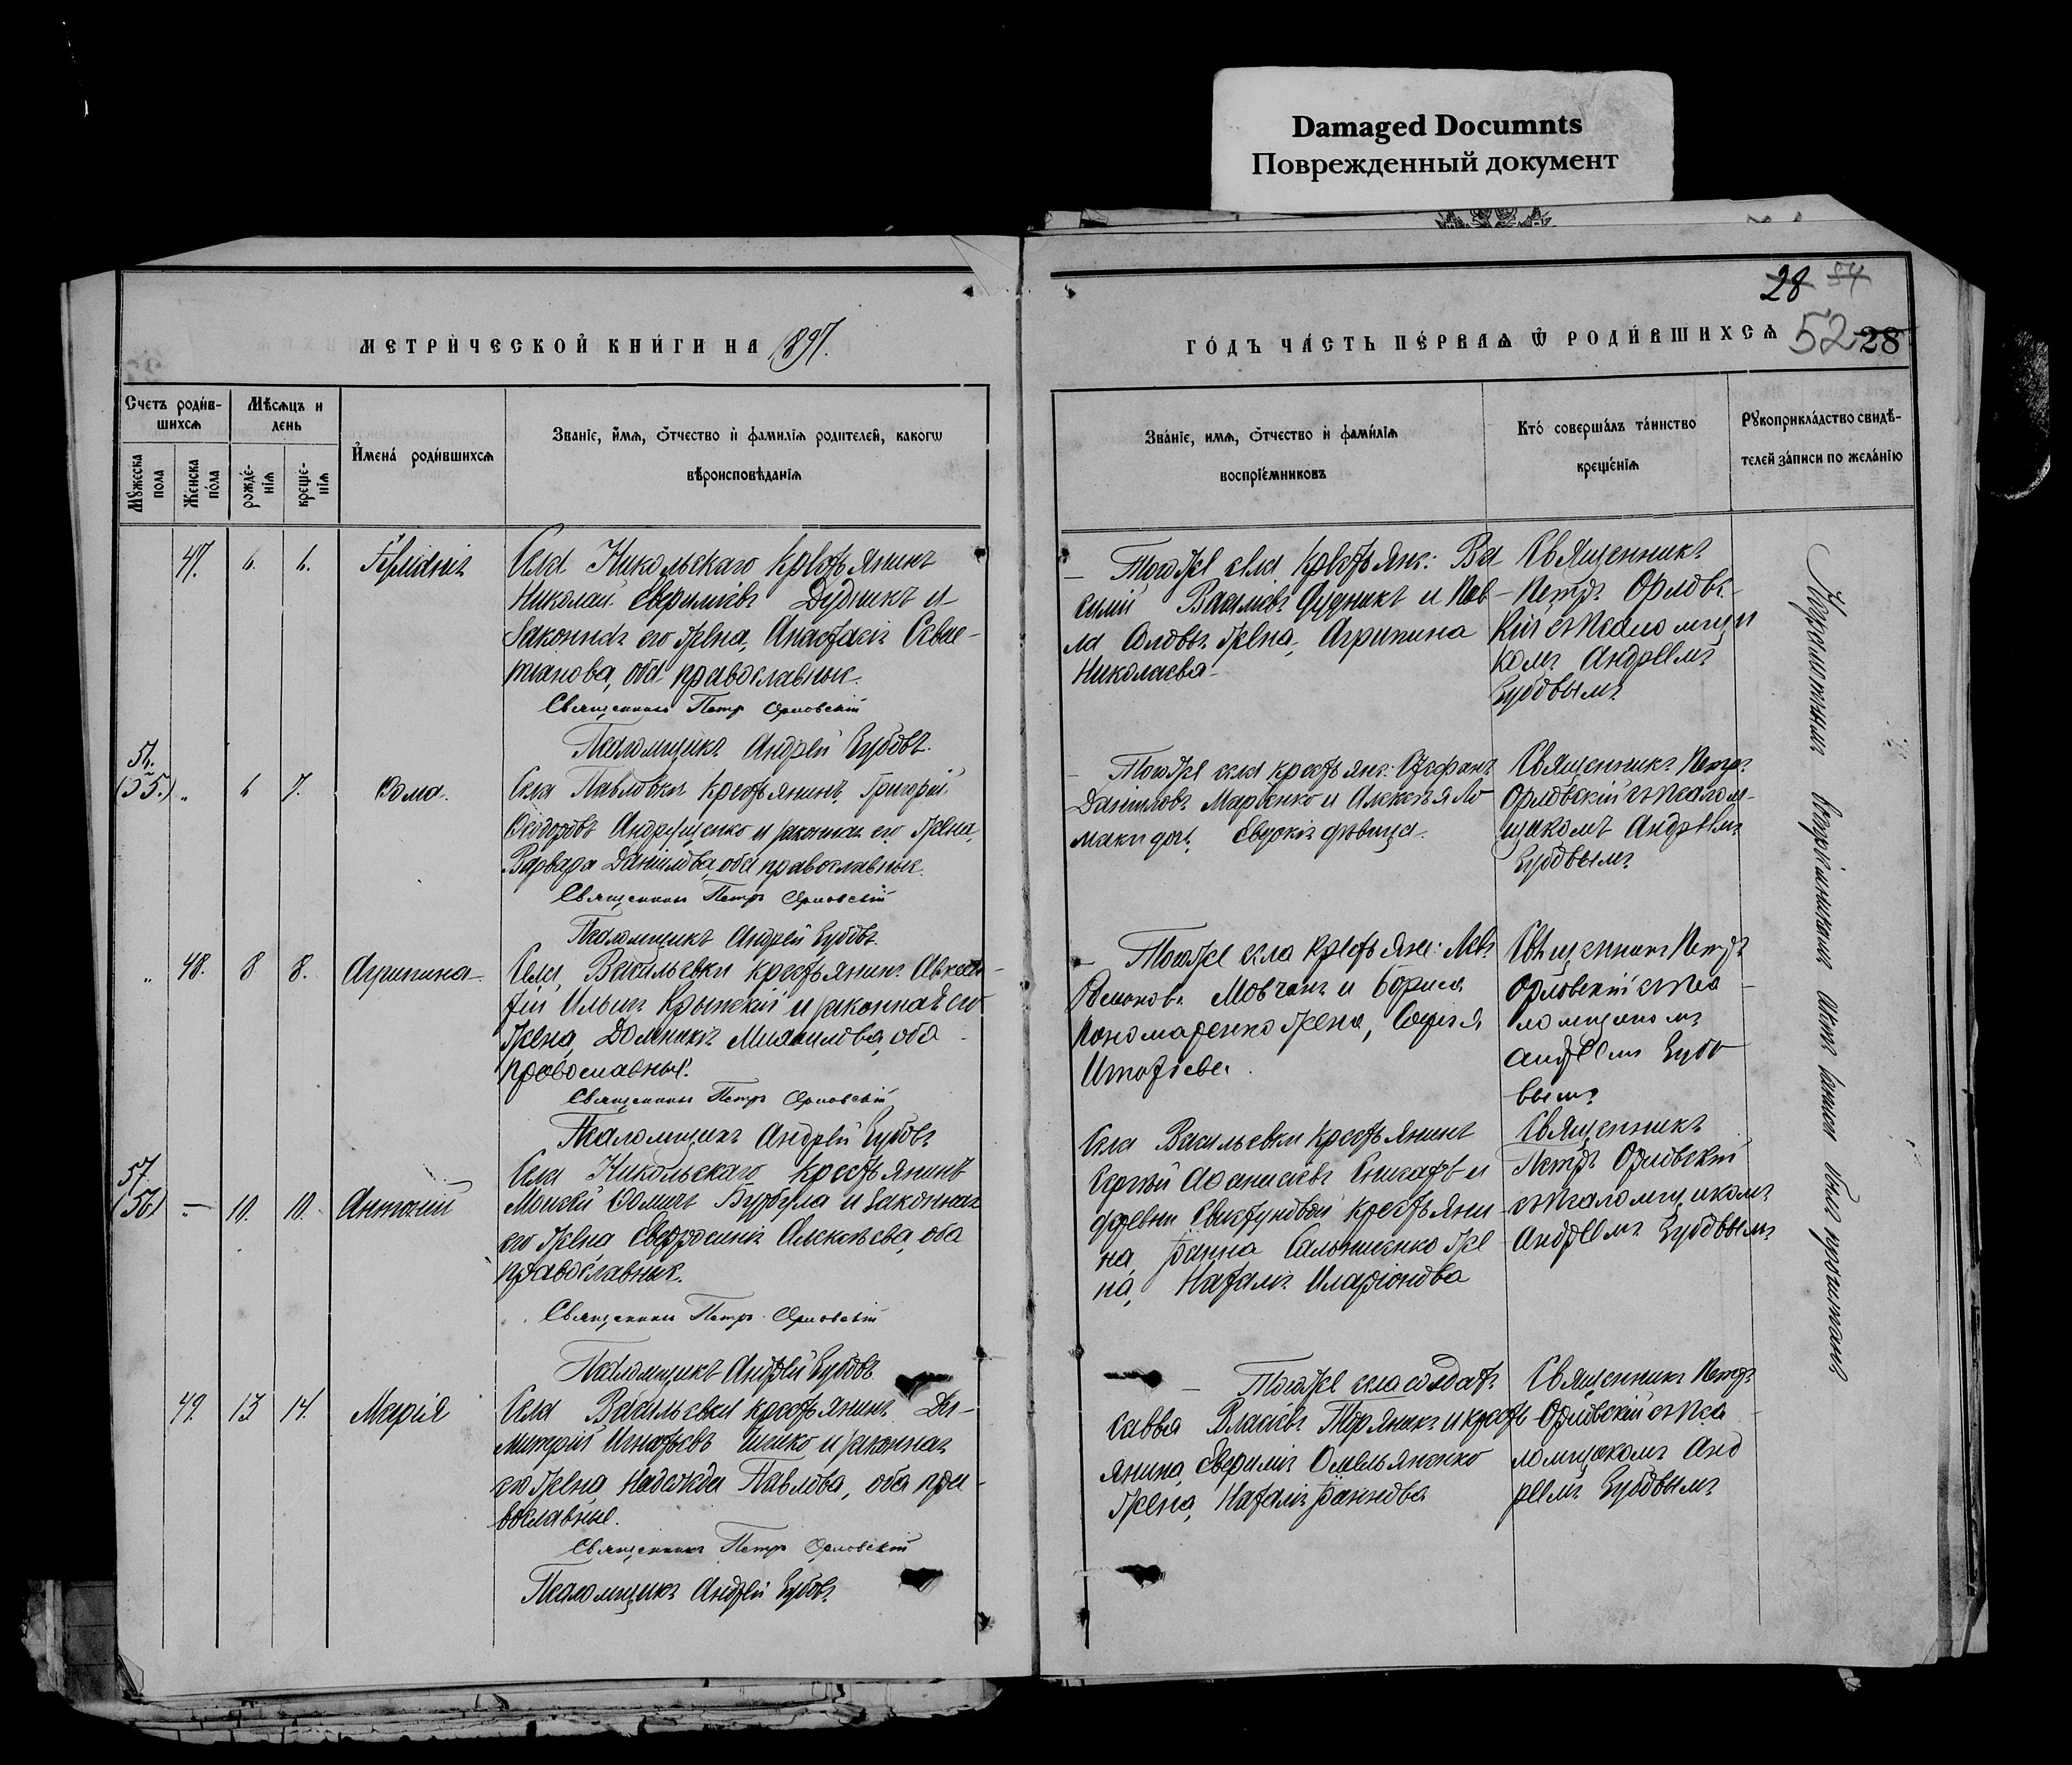 Damaged Documnts
Поврежденный документ
28 54
52 28
МЕТРИ́ЧЕСКОЙ КНИ́ГИ НА 1897.
ГО́ДЪ ЧА́СТЬ ПЕ́РВАѦ Ѿ РОДИ́ВШИХСѦ
Счетъ роди́в-
шихсѧ
Мѣсѧцъ и
день
Мꙋжеска
пола
Же́нска
по́ла
рожде́-
нїѧ
креще́-
нїѧ
И҆мена́ роди́вшихсѧ
Званїе, и҆мѧ, ѻ҆тчество и҆ фамилїѧ родителей, какогѡ
вѣроисповѣданїѧ
Зва́нїе, имѧ, ѻ҆тчество и҆ фами́лїѧ
воспрїе́мниковъ
Кто̀ соверша́лъ та́инство
креще́нїѧ
Рꙋкоприкла́дство свидѣ́-
телей за́писи по жела́нїю
47. 6. 6.
Села Никольскаго крестьянинъ
Николай Евфиміевъ Дудникъ и
законная его жена, Анастасія Севас-
тіанова, оба православные.
Священникъ Петръ Орловскій
Псаломщикъ Андрей Зубовъ.
Тогоже села крестьян: Ва
силій Василіевъ Дудникъ и Пав-
ла жена, Агрипина
Николаева
Священникъ
Петръ Орловс-
кій съ псаломщи
комъ Андреемъ
Зубовымъ
54.
(55.) „ 6 7. Ѳома.
Села Павловки крестьянинъ, Григорій
Ѳеодоровъ Андрущенко и законная его жена,
Варвара Даніилова, оба православные.
Священникъ Петръ Орловскій
Псаломщикъ Андрей Зубовъ.
Тогоже села крестьян: Стефанъ
Данииловъ Марченко и Алексѣя Ло
маки дочь, Евдокія дѣвица.
Священникъ Петръ
Орловскій съ псалом-
щикомъ Андреемъ
Зубовымъ
„ 48. 8 8. Агрипина
Села, Васильевки крестьянинъ
Ильинъ Крымскій и законная его
жена, Домникія Михаилова, оба
православные.
Священникъ Петръ Орловскій
Псаломщикъ Андрей Зубовъ
Тогоже села крестьян: Левъ
Романовъ Мовчанъ и Бориса
Пономаренко жена, Софія
Игнатіева.
Священникъ Петръ
Орловскій съ пса
ломщикомъ
Андреемъ Зубо
вымъ
57.
(56) „ 10. 10. Антоній
Села Никольскаго крестьянинъ
Моисей Ѳомичъ Бурбула и законная
его жена, Евфросинія Алексѣева, оба
православные.
Священникъ Петръ Орловскій
Псаломщикъ Андрей Зубовъ
Села Васильевки крестьянинъ
Сергѣй Аѳанасіевъ и
дѣревни крестьяни
на, Іоанна же
на, Наталія Иларіонова
Священникъ
Петръ Орловскій
съ псаломщикомъ
Андреемъ Зубовымъ
49. 13 14. Марія
Села Васильевки крестьянинъ Ди-
митрій Игнатьевъ и законная
его жена, Надежда Павлова, оба пра-
вославные.
Священникъ Петръ Орловскій
Псаломщикъ Андрей Зубовъ
Тогоже села солдатъ
Савва Власіевъ и кресть
янина, Евфимія Омельяненко
жена, Наталія Іоаннова
Священникъ Петръ
Орловскій съ пса
ломщикомъ Анд
реемъ Зубовымъ
Неграмотнымъ воспріемникамъ актъ сей былъ прочитанъ